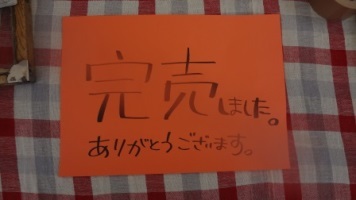 完売しました。
ありがとうございます。